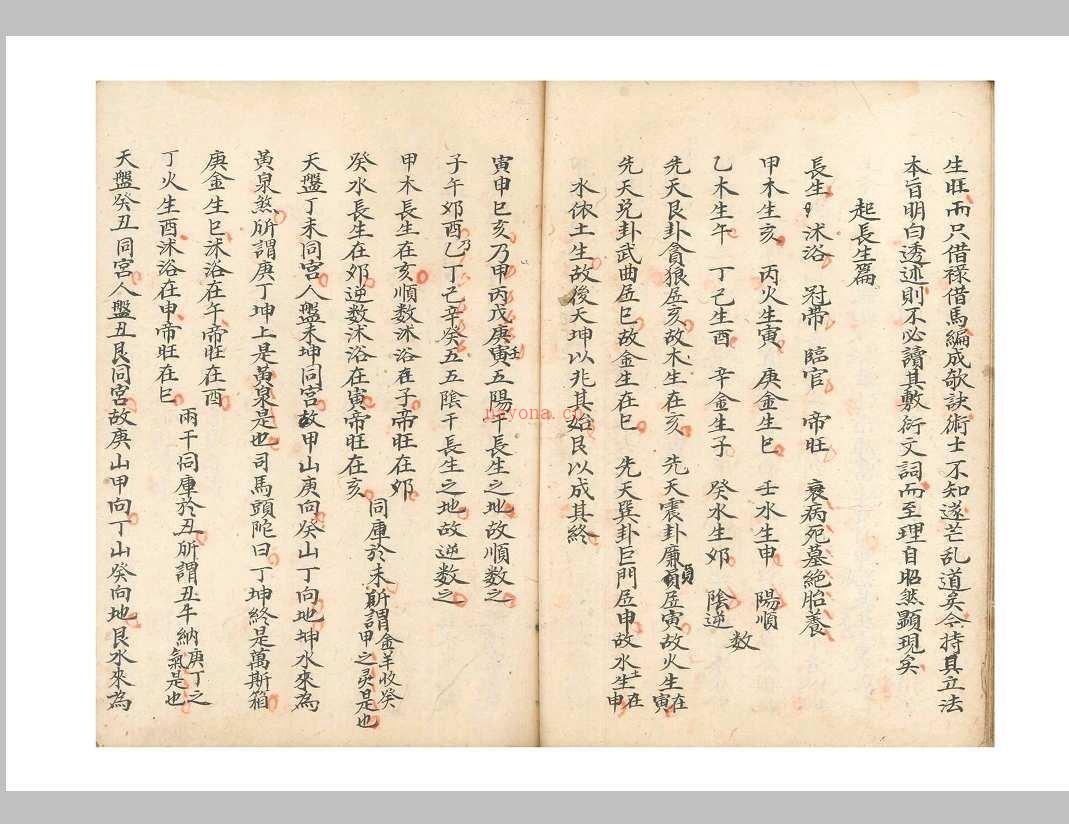 生旺而只借祿借馬編成歌訣術士不知遂芒乱道矣今持具立法
本旨明白透述則不必讀其敷衍文詞而至理自昭然顯現矣
起長生篇
長生 沭浴 冠帶 臨官 帝旺 衰病死墓絶胎養
甲木生亥 丙火生寅 庚金生巳 壬水生申 陽順
乙木生午 丁己生酉 辛金生子 癸水生夘 陰逆 数
先天艮卦貪狼居亥故木生在亥 先天震卦廉貞居寅故火生在寅
先天兌卦武曲居巳故金生在巳 先天巽卦巨門居申故水土生在申
水依土生故後天坤以兆其始艮以成其終
寅申巳亥乃甲丙戊庚壬五陽干長生之地故順数之
子午夘酉乃乙丁己辛癸五五陰干長生之地故逆数之
甲木長生在亥順数沭浴在子帝旺在夘
癸水長生在夘逆数沭浴在寅帝旺在亥
同庫於未所謂金羊收癸甲之灵是也
天盤丁未同宮人盤未坤同宮故甲山庚向癸山丁向地坤水來為
黄泉煞所謂庚丁坤上是黄泉是也司馬頭陀曰丁坤終是萬斯箱
庚金生巳沭浴在午帝旺在酉
丁火生酉沭浴在申帝旺在巳
兩干同庫於丑所謂丑牛納庚丁之氣是也
天盤癸丑同宮人盤丑艮同宮故庚山甲向丁山癸向地艮水來為
nayona.cn